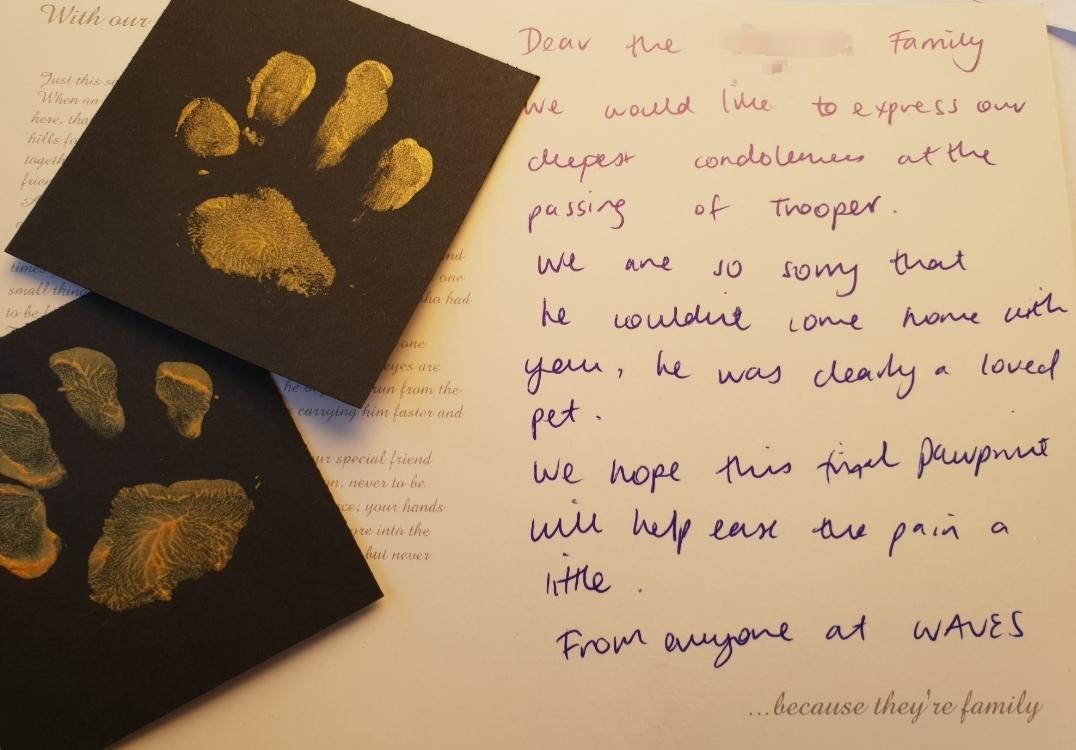 With our
Just this
When an
here, tha
hills
togeth
frien
times
small thing
to be
nd
one
ho had
one
eyes are
run from the
carrying him faster and
ur special friend
n, never to be
ce, your hands
ore into the
but never
Dear the Family
We would like to express our
deepest condolences at the
passing of Trooper.
We are so sorry that
he couldn't come home with
you, he was clearly a loved
pet.
We hope this final Pawprint
will help ease the pain a
little.
From everyone at WAVES
...because they're family